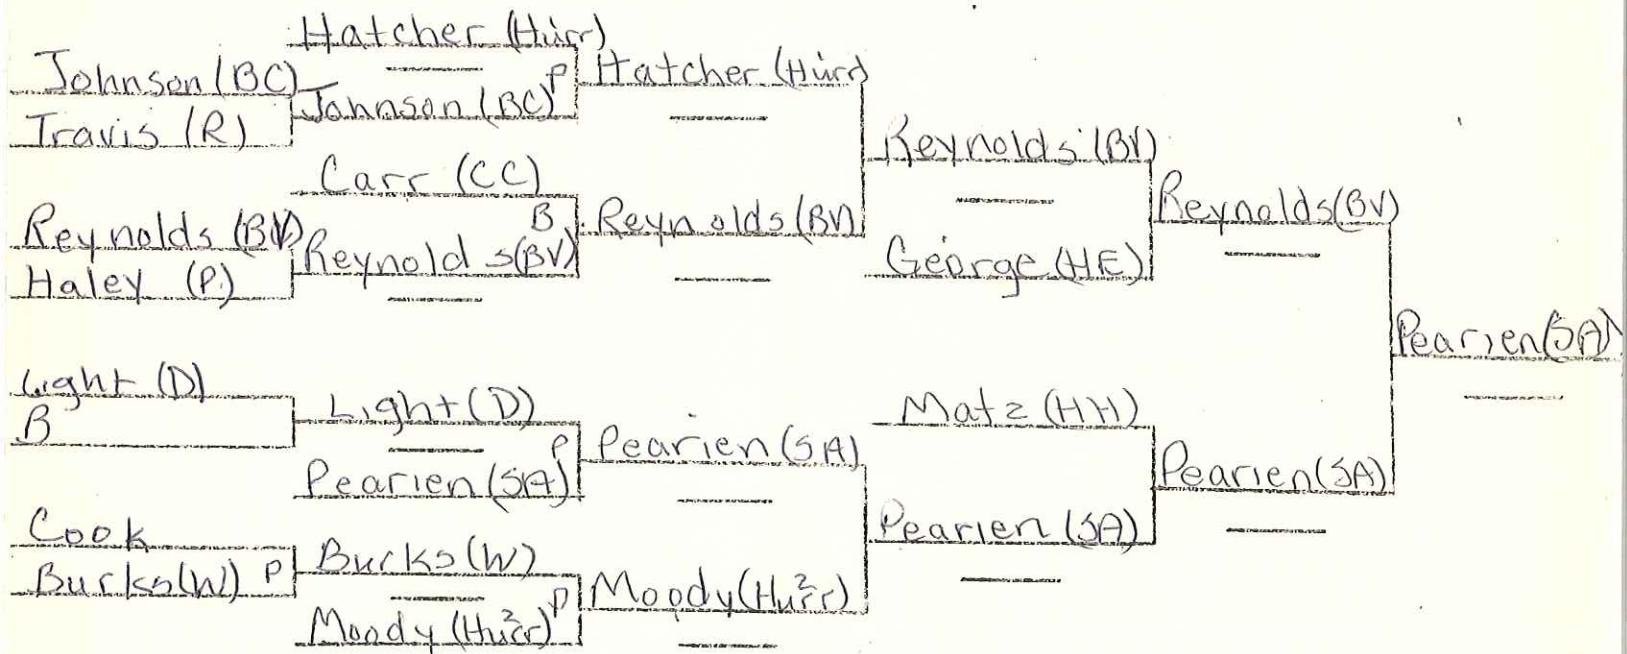 Johnson (BC)
Travis (R)
Reynolds (BV)
Haley (P)
Light (D)
B
Cook
Burks (W) P
Hatcher (Hurr)
Johnson (BC) P
Carr (CC)
B
Reynolds (BV)
Light (D)
P
Pearien (SA)
Burks (W)
Moody (Hu²rr) P
Hatcher (Hurr)
Reynolds (BV)
Pearien (SA)
Moody (Hu²rr)
Reynolds (BV)
George (HE)
Matz (HH)
Pearien (SA)
Reynolds (BV)
Pearien (SA)
Pearien (SA)